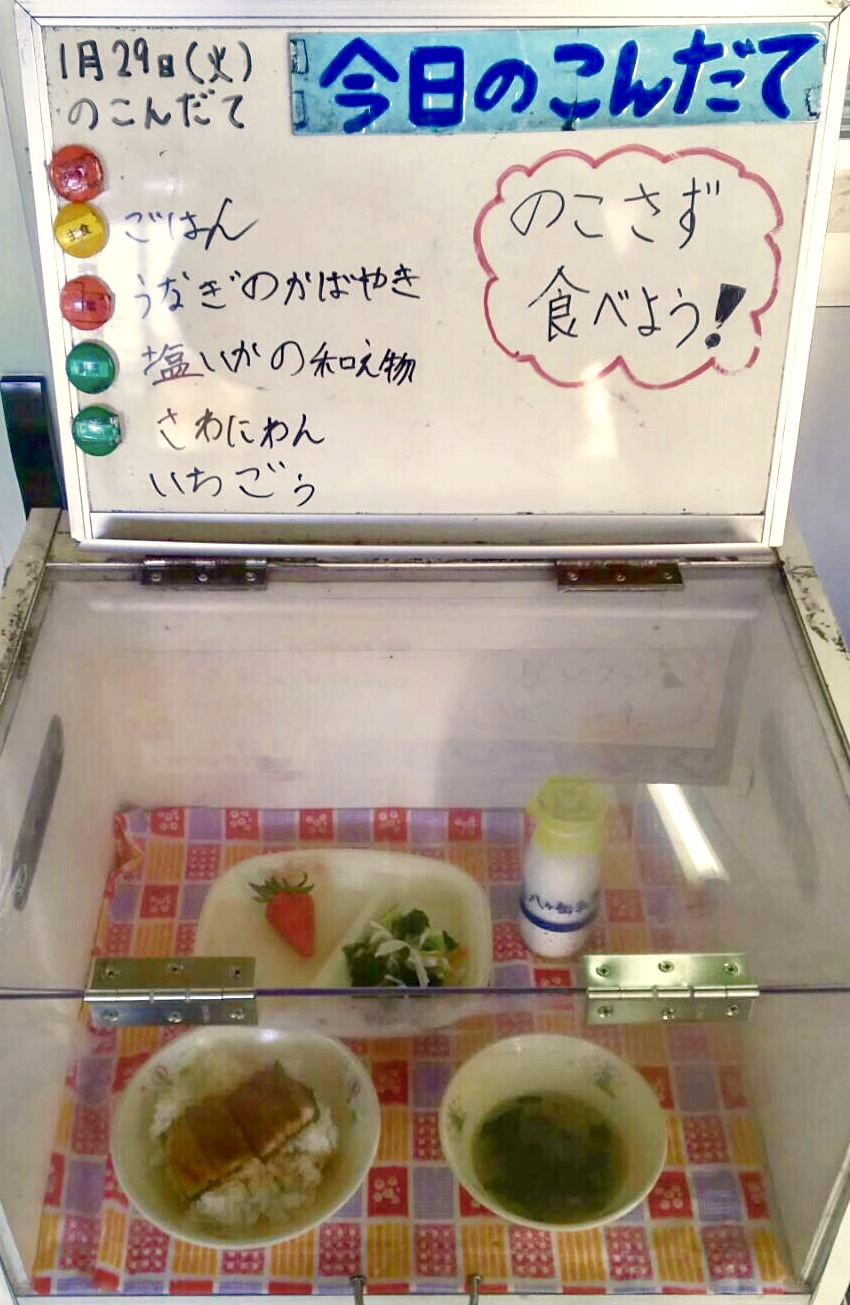 1月29日(火)
のこんだて
今日のこんだて
のこさず
食べよう!
主食
ごはん
うなぎのかばやき
塩いかの和え物
さわにわん
いちごぅ
八ヶ岳